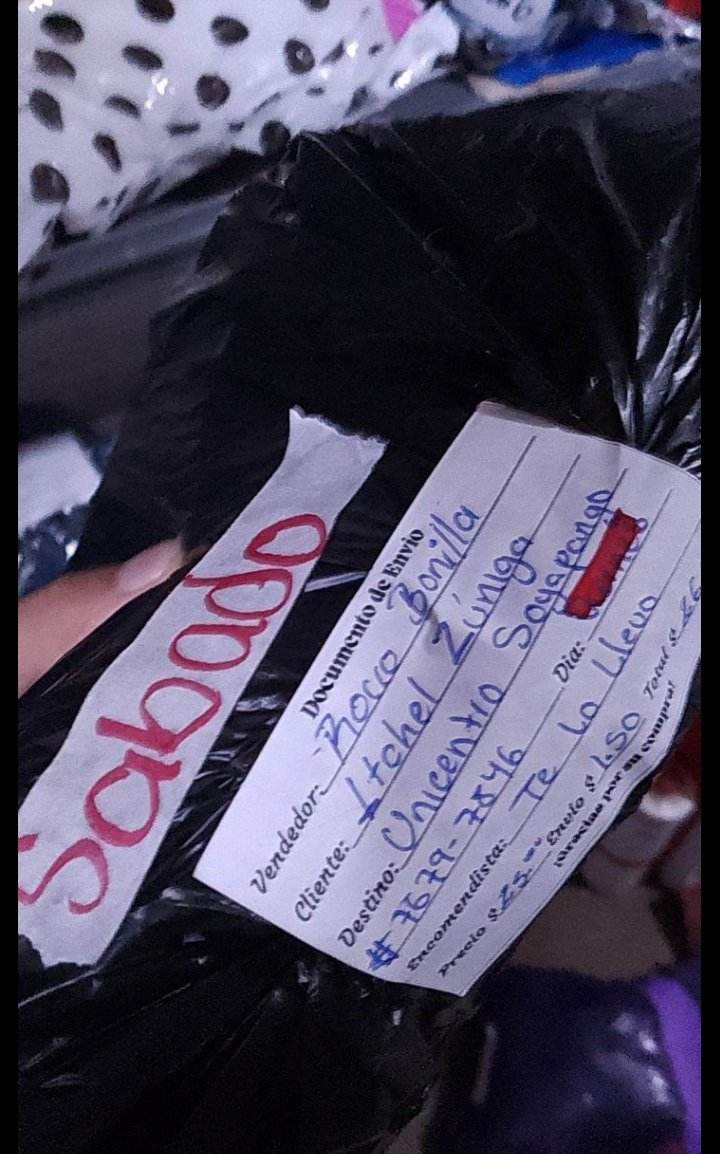 Sabado
Documento de Envio
Vendedor: Rocio Bonilla
Cliente: Itchel Zúniga
Destino: Unicentro Soyapango
# 7679-7846 Dia:
Encomendista: Te Lo Llevo
Precio $ 25.00 Envio $ 1.50 Total $ 26
¡Gracias por su compra!